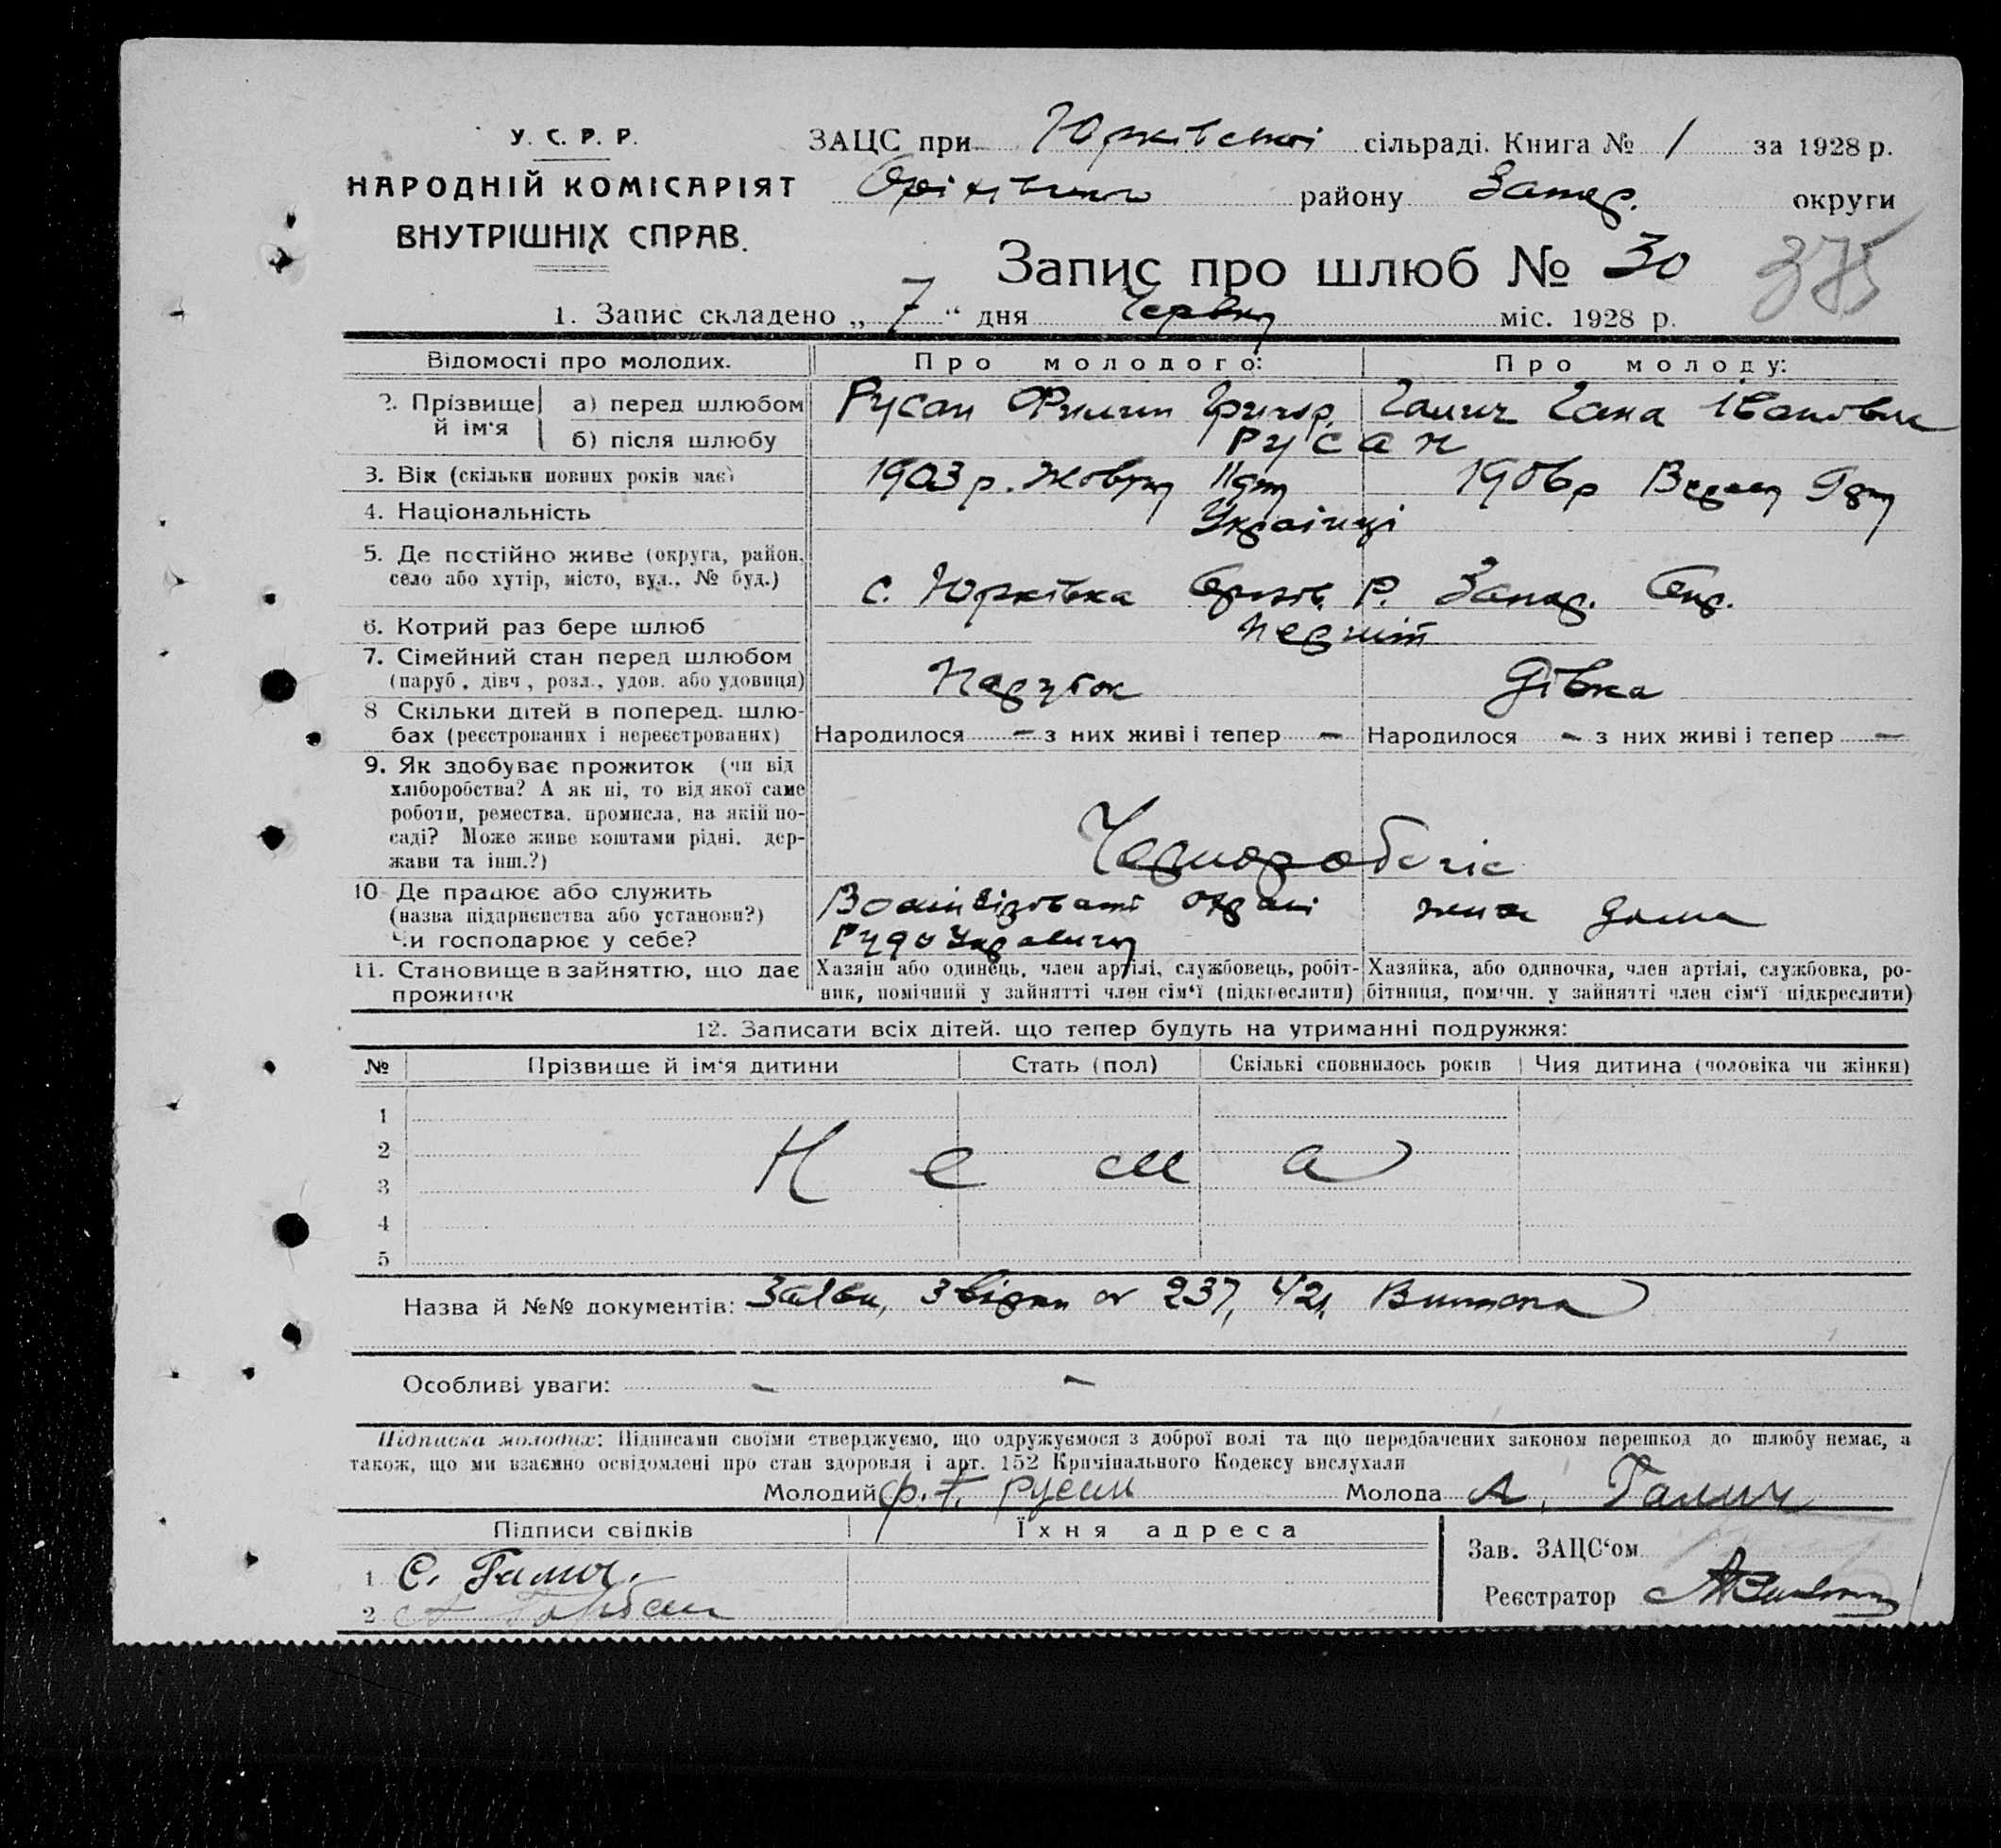 У. С. Р. Р.
НАРОДНІЙ КОМІСАРІЯТ
ВНУТРІШНІХ СПРАВ.
ЗАЦС при Юрківській сільраді. Книга № 1 за 1928 р.
Оріхівського району Запор. округи
Запис про шлюб № 30
375
1. Запис складено „ 7 “ дня Червня міс. 1928 р.
Відомості про молодих. Про молодого: Про молоду:
2. Прізвище й ім'я
а) перед шлюбом Русан Филип Григор. Галич Гана Івановна
б) після шлюбу Русан
3. Вік (скільки повних років має) 1903 р. Жовтня 11 дня 1906 р
4. Національність Українці
5. Де постійно живе (округа, район, село або хутір, місто, вул., № буд.)
с. Юрківка Оріхів. Р. Запор. Окр.
6. Котрий раз бере шлюб Перший
7. Сімейний стан перед шлюбом Парубок Дівка
(паруб., дівч., розл., удов. або удовиця)
8 Скільки дітей в поперед. шлю-
бах (реєстрованих і нереєстрованих) Народилося — з них живі і тепер — Народилося — з них живі і тепер —
9. Як здобуває прожиток (чи від
хліборобства? А як ні, то від якої саме
роботи, ремества, промисла, на якій по-
саді? Може живе коштами рідні, дер-
жави та інш.?)
Чорноробочіє
10 Де працює або служить
(назва підприємства або установи?)
Чи господарює у себе?
охрані
дома
11. Становище в зайняттю, що дає
прожиток
Хазяїн або одинець, член артілі, службовець, робіт-
ник, помічний у зайнятті член сім'ї (підкреслити)
Хазяйка, або одиночка, член артілі, службовка, ро-
бітниця, помічн. у зайнятті член сім'ї підкреслити)
12. Записати всіх дітей. що тепер будуть на утриманні подружжя:
№ Прізвище й ім'я дитини Стать (пол) Скількі сповнилось років Чия дитина (чоловіка чи жінки)
1
2
Нема
3
4
5
Назва й №№ документів: Заяви, 237, 421,
Особливі уваги: — —
Підписка молодих: Підписами своїми стверджуємо, що одружуємося з доброї волі та що передбачених законом перешкод до шлюбу немає, а
також, що ми взаємно освідомлені про стан здоровля і арт. 152 Кримінального Кодексу вислухали
Молодий Русан Молода А. Галич
Підписи свідків Їхня адреса
1 С. Галич.
2
Зав. ЗАЦС'ом
Реєстратор